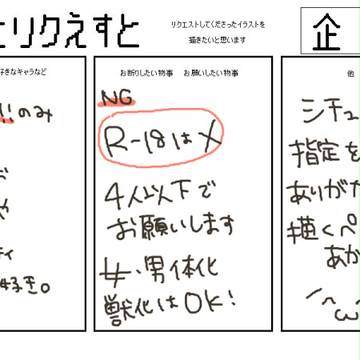 とリクえすと
リクエストしてくださったイラストを
描きたいと思います
企
好きなキャラなど
のみ
好き。
お断りしたい物事 お願いしたい物事
NG
R-18は×
4人以下で
お願いします
女・男体化
獣化はOK!
他
シチュ
指定を
ありがた
描くペ
あか